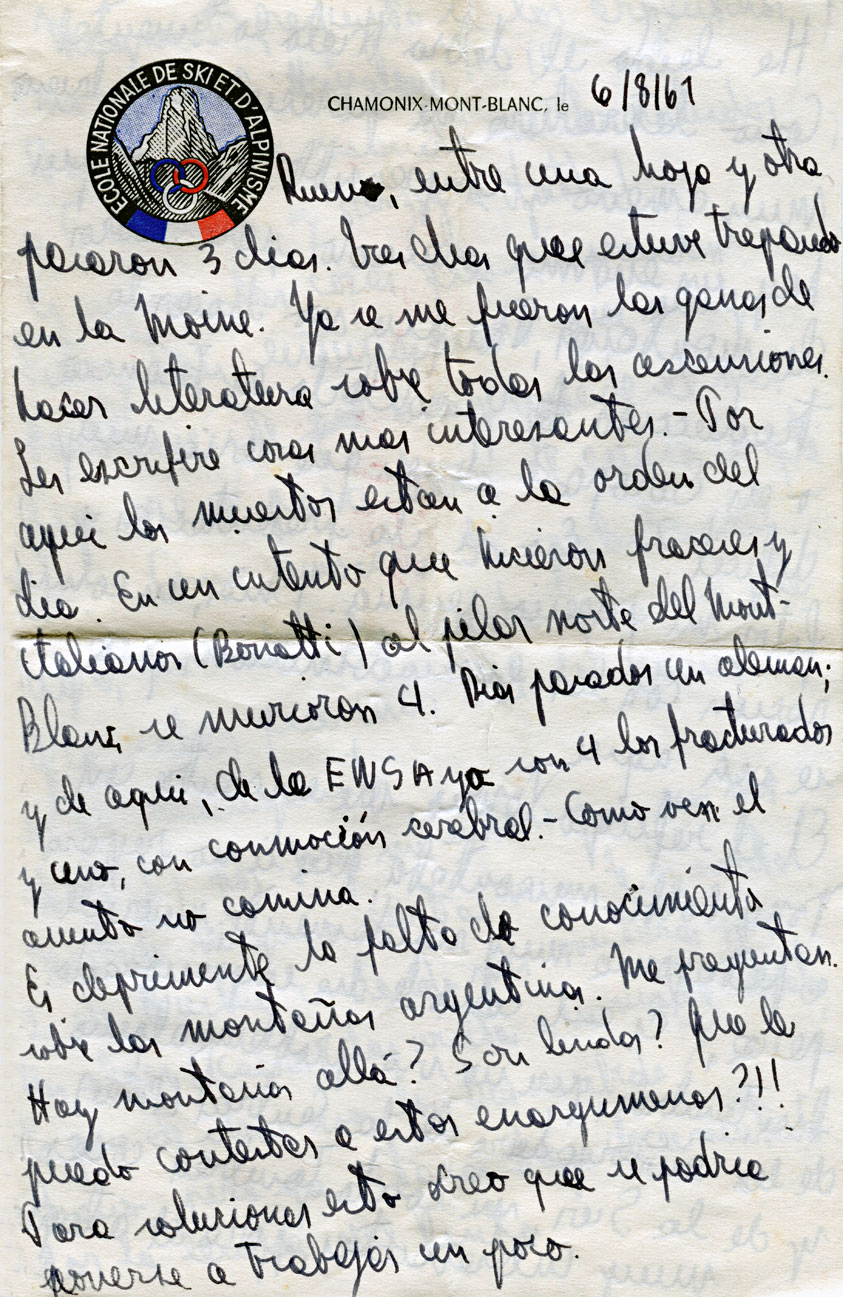 ECOLE NATIONALE DE SKI ET D'ALPINISME
CHAMONIX-MONT-BLANC, le 6/8/61
Bueno, entre una hoja y otra
pasaron 3 dias. Tres dias que estuve trepando
en la Moine. Ya se me fueron las ganas de
hacer literatura sobre todas las ascensiones.
Les escribire cosas mas interesantes.- Por
aqui los muertos estan a la orden del
dia. En un intento que hicieron franceses y
italianos (Bonatti) al pilar norte del Mont-
Blanc se murieron 4. Dias pasados un aleman;
y de aqui, de la ENSA ya son 4 los fracturados
y uno, con conmoción cerebral.- Como ven el
asunto no camina.
Es deprimente la falta de conocimiento
sobre las montañas argentinas. Me preguntan.
Hay montañas allá? Son lindas? Que le
puedo contestar a estos energumenos?!!!
Para solucionar esto creo que se podria
ponerse a trabajar un poco.